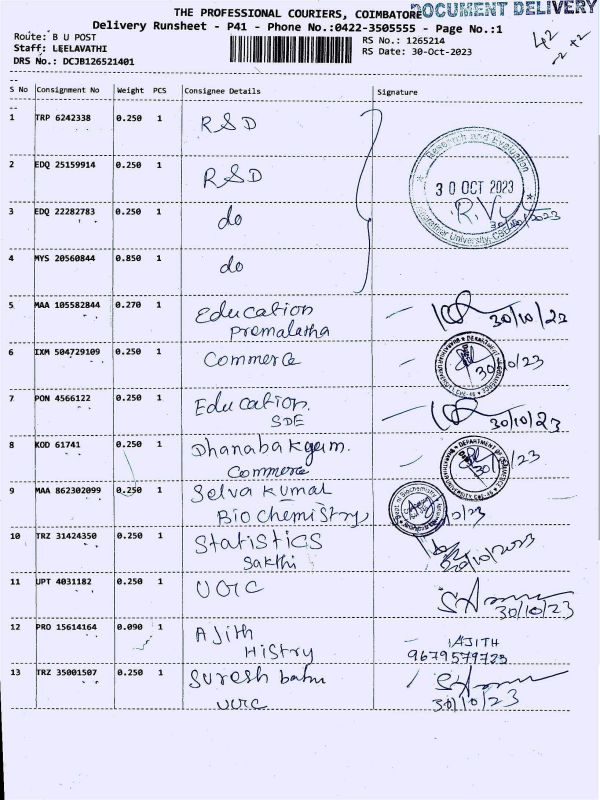 THE PROFESSIONAL COURIERS, COIMBATORE
DOCUMENT DELIVERY
Delivery Runsheet - P41 - Phone No.:0422-3505555 - Page No.:1
Route: B U POST
RS No.: 1265214
Staff: LEELAVATHI
RS Date: 30-Oct-2023
DRS No.: DCJB126521401
S No Consignment No Weight PCS Consignee Details Signature
1 TRP 6242338 0.250 1 RSD
2 EDQ 25159914 0.250 1 RSD
Research and Evaluation
30 OCT 2023
University
3 EDQ 22282783 0.250 1 do
4 MYS 20560844 0.850 1 do
5 MAA 105582844 0.270 1 Education
Premalatha 30/10/23
6 IXM 504729109 0.250 1 Commerce 30/10/23
7 PON 4566122 0.250 1 Education.
SDE 30/10/23
8 KOD 61741 0.250 1
Commerce
9 MAA 862302099 0.250 1 Selva kumar
BioChemistry
10 TRZ 31424350 0.250 1 Statistics
Sakthi 30/10/2023
11 UPT 4031182 0.250 1 UOIC
30/10/23
12 PRO 15614164 0.090 1 Ajith AJITH
Histry
13 TRZ 35001507 0.250 1 Suresh babu
30/10/23